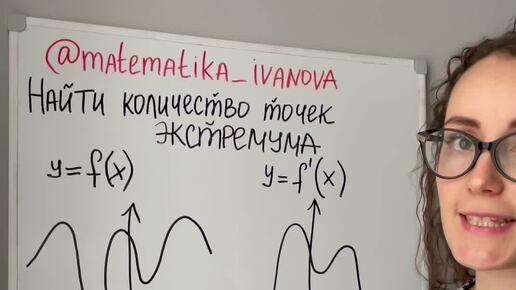 @matematika_ivanova
Найти количество точек
экстремума
y=f(x)
y=f'(x)